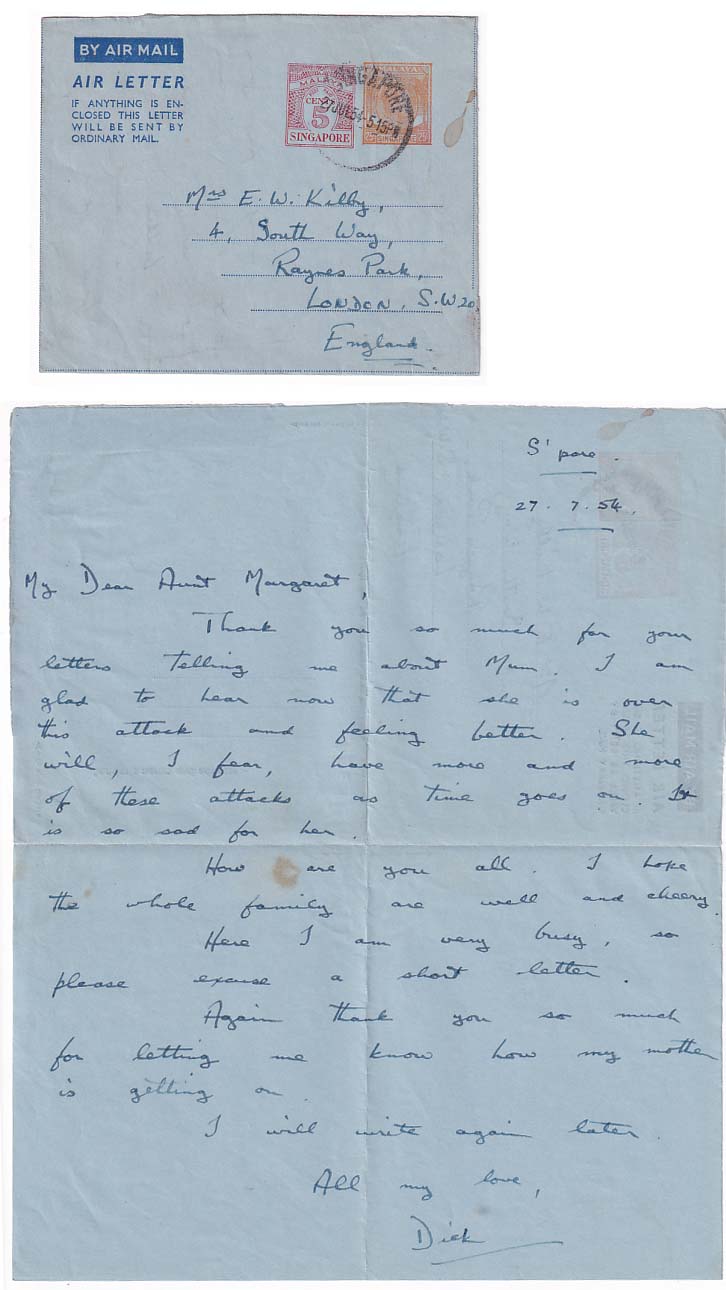 BY AIR MAIL
AIR LETTER
IF ANYTHING IS EN-
CLOSED THIS LETTER
WILL BE SENT BY
ORDINARY MAIL.
MALAYA
CENTS
5
SINGAPORE
MALAYA
SINGAPORE
SINGAPORE
27 JUL 54-5 15PM
Mrs E. W. Kilby,
4, South Way,
Raynes Park,
LONDON, S.W.20
England.
S'pore.
27. 7. 54.
My Dear Aunt Margaret,
Thank you so much for your
letters telling me about Mum. I am
glad to hear now that she is over
this attack and feeling better. She
will, I fear, have more and more
of these attacks as time goes on. It
is so sad for her.
How are you all. I hope
the whole family are well and cheery.
Here I am very busy, so
please excuse a short letter.
Again thank you so much
for letting me know how my mother
is getting on.
I will write again later.
All my love,
Dick